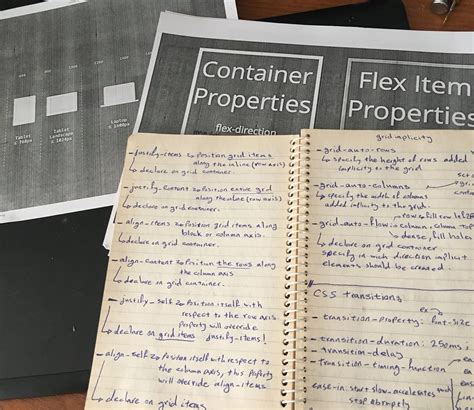 Container
Properties
flex-direction
Flex Item
Properties
Tablet
Tablet
Landscape
Laptop
- justify-items → Position grid items
along the inline (row axis)
↳ declare on grid container.
- justify-content → Position entire grid
along the inline (row axis)
↳ declare on grid container.
- align-items → Position grid items along
block or column axis.
↳ declare on grid container.
- align-content → Position the rows along
the column axis
↳ declare on grid container.
- justify-self → Position itself with
respect to the row axis.
Property will override
↳ declare on grid items justify-items!
- align-self → Position itself with respect to
the column axis, this Property
will override align-items.
↳ declare on grid items
grid implicity
- grid-auto-rows
↳ specify the height of rows added
implicity to the grid.
- grid-auto-columns
↳ specify the width of columns
added implicity to the grid.
- grid-auto-flow:
↳ declare on grid container
specify in which direction implicit
elements should be created.
CSS transitions
ex
- transition-property: font-size
- transition-duration: 250ms;
- transition-delay
- transition-timing-function
ex
ease-in: start slow, accelerates
stop abruptly